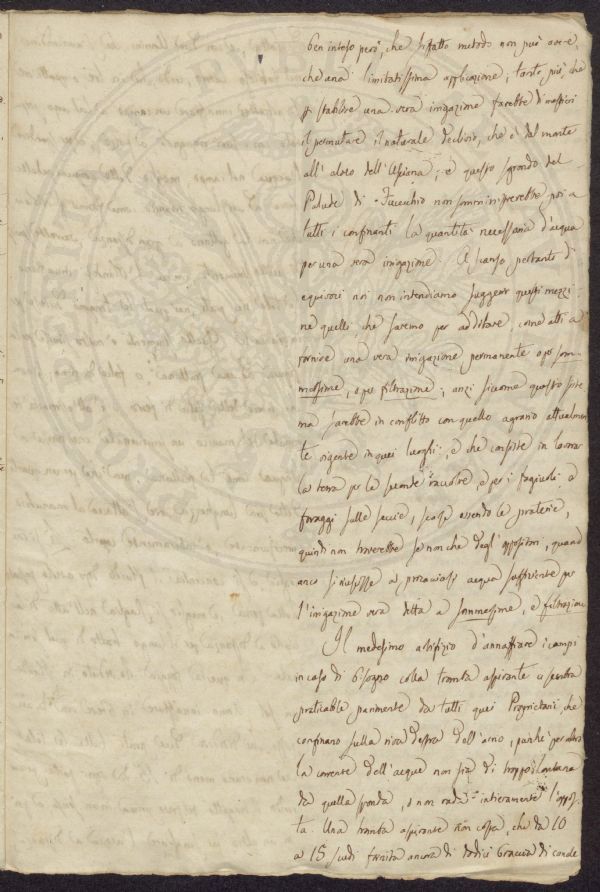 ben inteso però, che siffatto metodo non può avere,
che una limitatissima applicazione; tanto più, che
p stabilire una vera irrigazione farebbe di mestieri
il permutare il naturale declivio, che è dal monte
all' alveo dell' Usciana; e questo sgrondo del
Palude di Fucecchio non somministrerebbe poi a
tutti i confinanti la quantità necessaria d'acqua
per una vera irrigazione. A scanso pertanto di
equivoci noi non intendiamo suggerir questi mezzi
ne quelli che saremo per additare, come atti a
fornire una vera irrigazione permanente o per som=
mersione, o per filtrazione; anzi siccome questo siste
ma sarebbe in conflitto con quello agrario attualmen
te vigente in quei luoghi; e che consiste in lavorar
la terra per le seconde raccolte, e per i fagiuoli e
foraggi sulle seccie, scarse essendo le praterie,
quindi non troverebbe se non che degl' oppositori, quand
anco si riuscisse a procacciarsi acqua sufficiente per
l'irrigazione vera detta a sommersione, e filtrazione
Il medesimo artifizio d'annaffiare i campi
in caso di bisogno colla tromba aspirante ci sembra
praticabile parimente da tutti quei Proprietarii che
confinano sulla riva destra dell' Arno, purchè per altro
la corrente dell' acque non sia di troppo lontana
da quella sponda, o non rada intieramente l'oppos=
ta. Una tromba aspirante non costa, che da 10
a 15 scudi fornita ancora di dodici braccia di canale